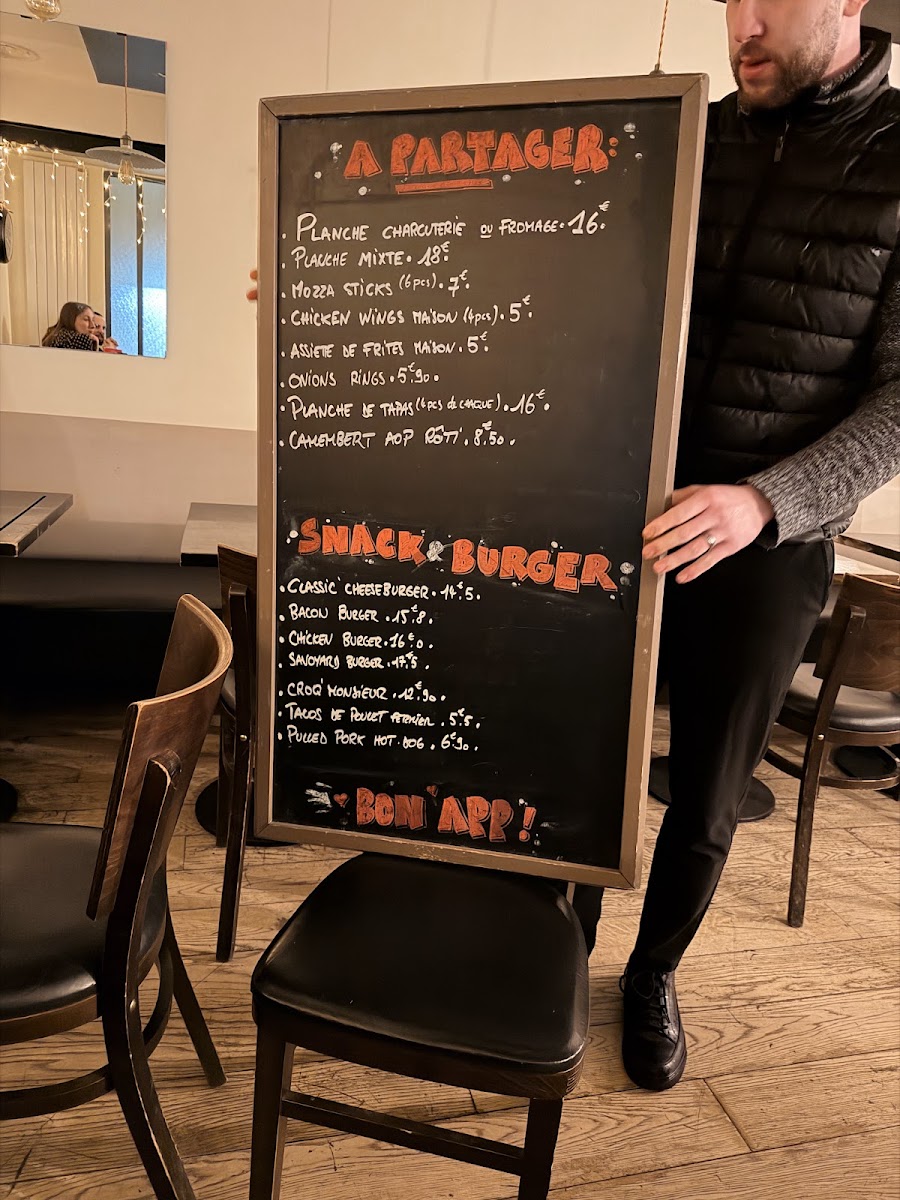 A PARTAGER:
• PLANCHE CHARCUTERIE OU FROMAGE • 16€.
• PLANCHE MIXTE • 18€.
• MOZZA STICKS (6pcs) • 7€.
• CHICKEN WINGS MAISON (4pcs) • 5€.
• ASSIETE DE FRITES MAISON • 5€.
• ONIONS RINGS • 5€90.
• PLANCHE DE TAPAS (4pcs de CHAQUE) • 16€.
• CAMEMBERT AOP RÔTI • 8€50.
SNACK & BURGER
• CLASSIC' CHEESEBURGER • 14€5.
• BACON BURGER • 15€8.
• CHICKEN BURGER • 16€0.
• SAVOYARD BURGER • 17€5.
• CROQ'MONSIEUR • 12€90.
• TACOS DE POULET FERMIER • 5€5.
• PULLED PORK HOT-DOG • 6€90.
BON' APP !